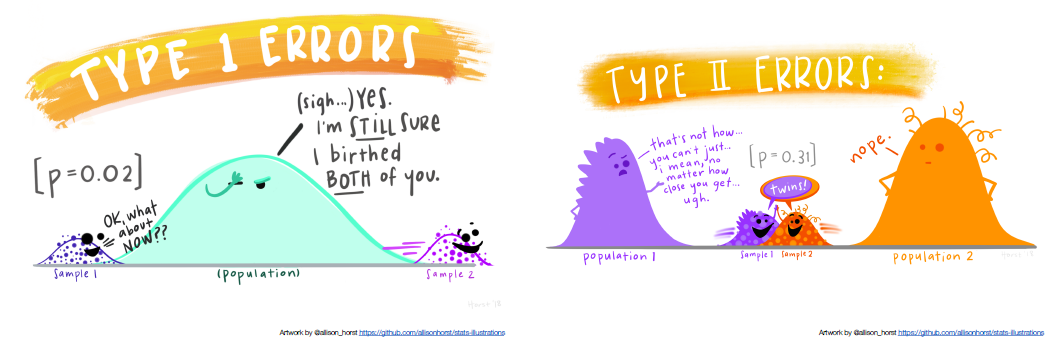 TYPE 1 ERRORS
(sigh...) Yes.
I'm STILL SURE
I birthed
BOTH of you.
[p=0.02]
OK, what
about
NOW??
Sample 1
(population)
Sample 2
Horst '18
Artwork by @allison_horst https://github.com/allisonhorst/stats-illustrations
TYPE II ERRORS:
that's not how...
you can't just...
i mean, no
matter how
close you get...
ugh.
[p=0.31]
twins!
nope.
population 1
Sample 1
Sample 2
population 2
Artwork by @allison_horst https://github.com/allisonhorst/stats-illustrations